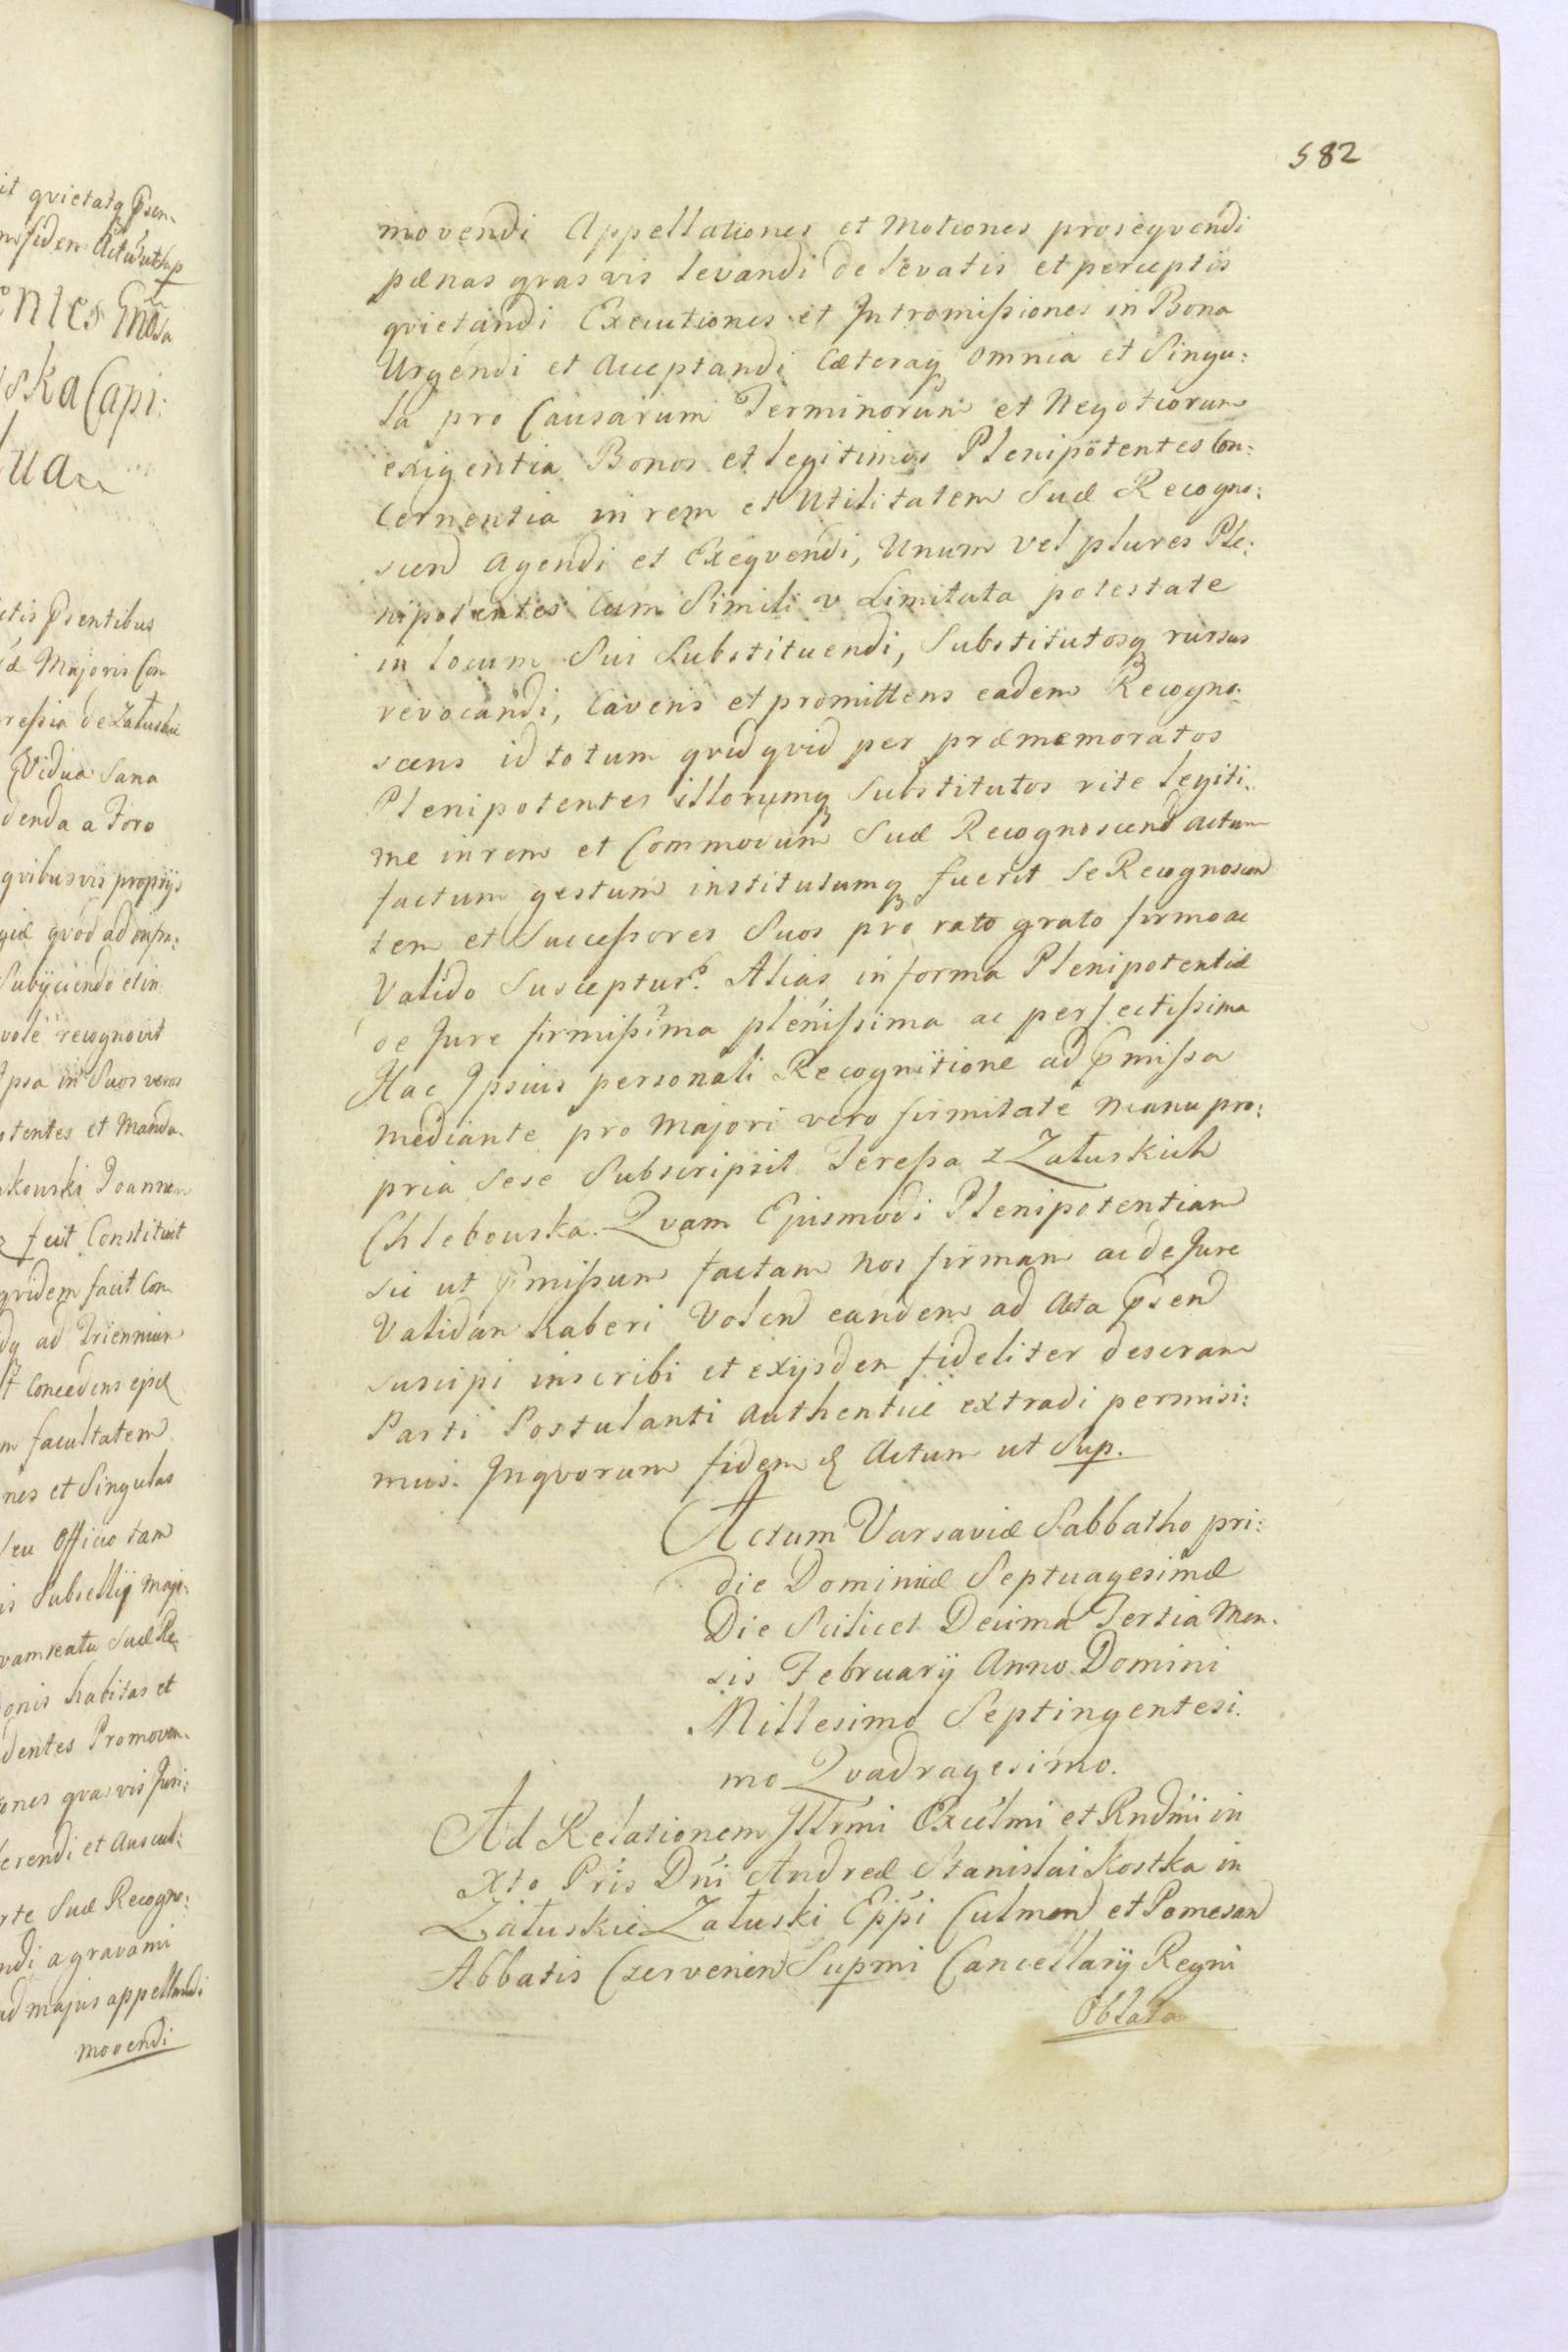 582
movendi Appellationes et Motiones proseqvendi
pænas qvasvis levandi de levatis et perceptis
qvietandi Executiones et Intromissiones in Bona
Urgendi et Acceptandi Cæteraq omnia et Singu:
la pro Causarum Terminorum et Negotiorum
exigentia Bonos et legitimos Plenipotentes Con:
cernentia in rem et Utilitatem Suæ Recogno:
scen agendi et Exeqvendi, Unum vel plures Ple:
nipotentes Cum Simili v Limitata potestate
in locum Sui Substituendi, Substitutosq rursus
revocandi, Cavens et promittens eadem Recogno:
scens id totum qvidqvid per præmemoratos
Plenipotentes illorumq Substitutos rite legiti:
me in rem et Commodum Suæ Recognoscend actum
factum gestum institutumq fuerit se Recognoscen
tem et Successores Suos pro rato grato firmo ac
Valido Susceptur. Alias in forma Plenipotentiæ
de Jure firmissima plenissima ac perfectissima
Hac Ipsius personali Recognitione ad pmissa
mediante pro Majori vero firmitate Manu pro:
pria sese Subscripsit Teressa z Załuskich
Chlebowska. Qvam Ejusmodi Plenipotentiam
sic ut pmissum factam nos firmam ac de Jure
Validam haberi Volen eandem ad Acta psen
suscipi inscribi et exijsdem fideliter descram
Parti Postulanti Authenticè extradi permisi:
mus. Inqvorum fidem & Actum ut Sup.
Actum Varsaviæ Sabbatho pri:
die Dominicæ Septuagesimæ
Die Scilicet Decima Tertia Men.
sis February Anno Domini
Millesimo Septingentesi.
mo Qvadragesimo.
Ad Relationem Illrmi Excelmi et Rndmi in
Xto Pris Dni Andreæ Stanislai Kostka in
Załuskie Załuski Eppi Culmen et Pomesan
Abbatis Czervenen Supmi Cancellarij Regni
Oblata
ska Capi:
Majoris Con
ressia de Załuskie
Vidua Sana
denda a Foro
qvibusvis proprijs
qvod ad infra:
Subijciendo et in
recognovit
Ipsa in Suos veros
tentes et Manda.
kowski Joannem
fecit Constituit
qvidem facit Con
ad Triennium
Concedens
facultatem
nes et Singulas
seu Officio tam
is Subsellij Majo:
onis habitas et
dentes Promoven.
ones qvasvis Juri:
erendi et Auscul:
rte Suæ Recogno:
ndi a gravami
ad majus appellandi
movendi